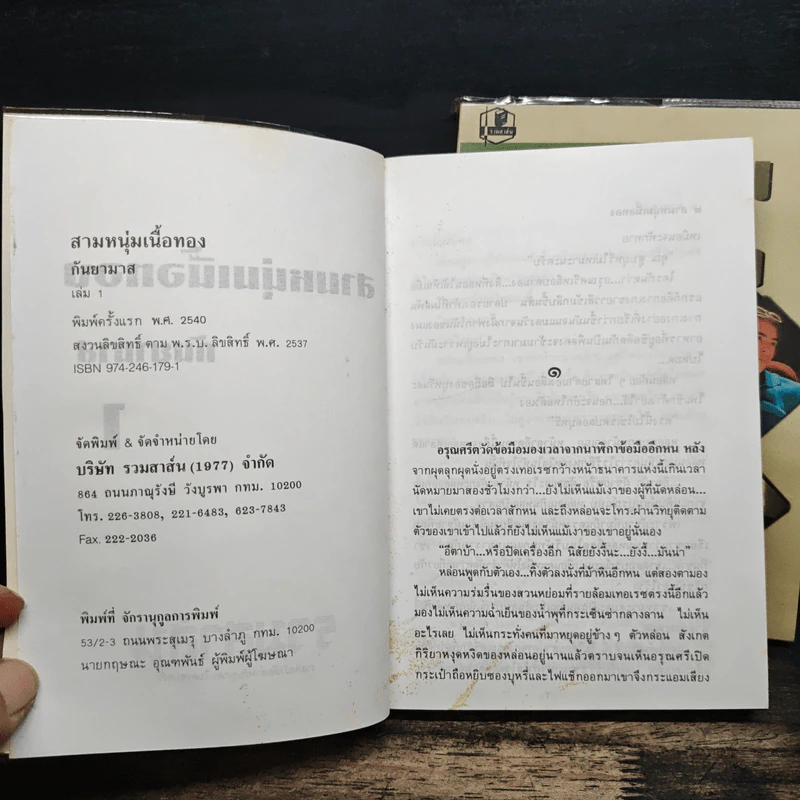 สามหนุ่มเนื้อทอง
กันยามาส
เล่ม 1
พิมพ์ครั้งแรก พ.ศ. 2540
สงวนลิขสิทธิ์ ตาม พ.ร.บ. ลิขสิทธิ์ พ.ศ. 2537
ISBN 974-246-179-1
จัดพิมพ์ & จัดจำหน่ายโดย
บริษัท รวมสาส์น (1977) จำกัด
864 ถนนภาณุรังษี วังบูรพา กทม. 10200
โทร. 226-3808, 221-6483, 623-7843
Fax. 222-2036
พิมพ์ที่ จักรานุกูลการพิมพ์
53/2-3 ถนนพระสุเมรุ บางลำภู กทม. 10200
นายกฤษณะ อุณฑพันธ์ ผู้พิมพ์ผู้โฆษณา
๑
อรุณศรีตวัดข้อมือมองเวลาจากนาฬิกาข้อมืออีกหน หลัง
จากผุดลุกผุดนั่งอยู่ตรงเทอเรซกว้างหน้าธนาคารแห่งนี้เกินเวลา
นัดหมายมาสองชั่วโมงกว่า...ยังไม่เห็นแม้เงาของผู้ที่นัดหล่อน...
เขาไม่เคยตรงต่อเวลาสักหน และถึงหล่อนจะโทร.ผ่านวิทยุติดตาม
ตัวของเขาเข้าไปแล้วก็ยังไม่เห็นแม้เงาของเขาอยู่นั่นเอง
“อีตาบ้า...หรือปิดเครื่องอีก นิสัยยังงี้นะ...ยังงี้...มันน่า”
หล่อนพูดกับตัวเอง...ทิ้งตัวลงนั่งที่ม้าหินอีกหน แต่สองตามอง
ไม่เห็นความร่มรื่นของสวนหย่อมที่รายล้อมเทอเรซตรงนี้อีกแล้ว
มองไม่เห็นความฉ่ำเย็นของน้ำพุที่กระเซ็นซ่ากลางลาน ไม่เห็น
อะไรเลย ไม่เห็นกระทั่งคนที่มาหยุดอยู่ข้าง ๆ ตัวหล่อน สังเกต
กิริยาหงุดหงิดของหล่อนอยู่นานแล้วตราบจนเห็นอรุณศรีเปิด
กระเป๋าถือหยิบซองบุหรี่และไฟแช็กออกมาเขาจึงกระแอมเสียง
รวมสาส์น